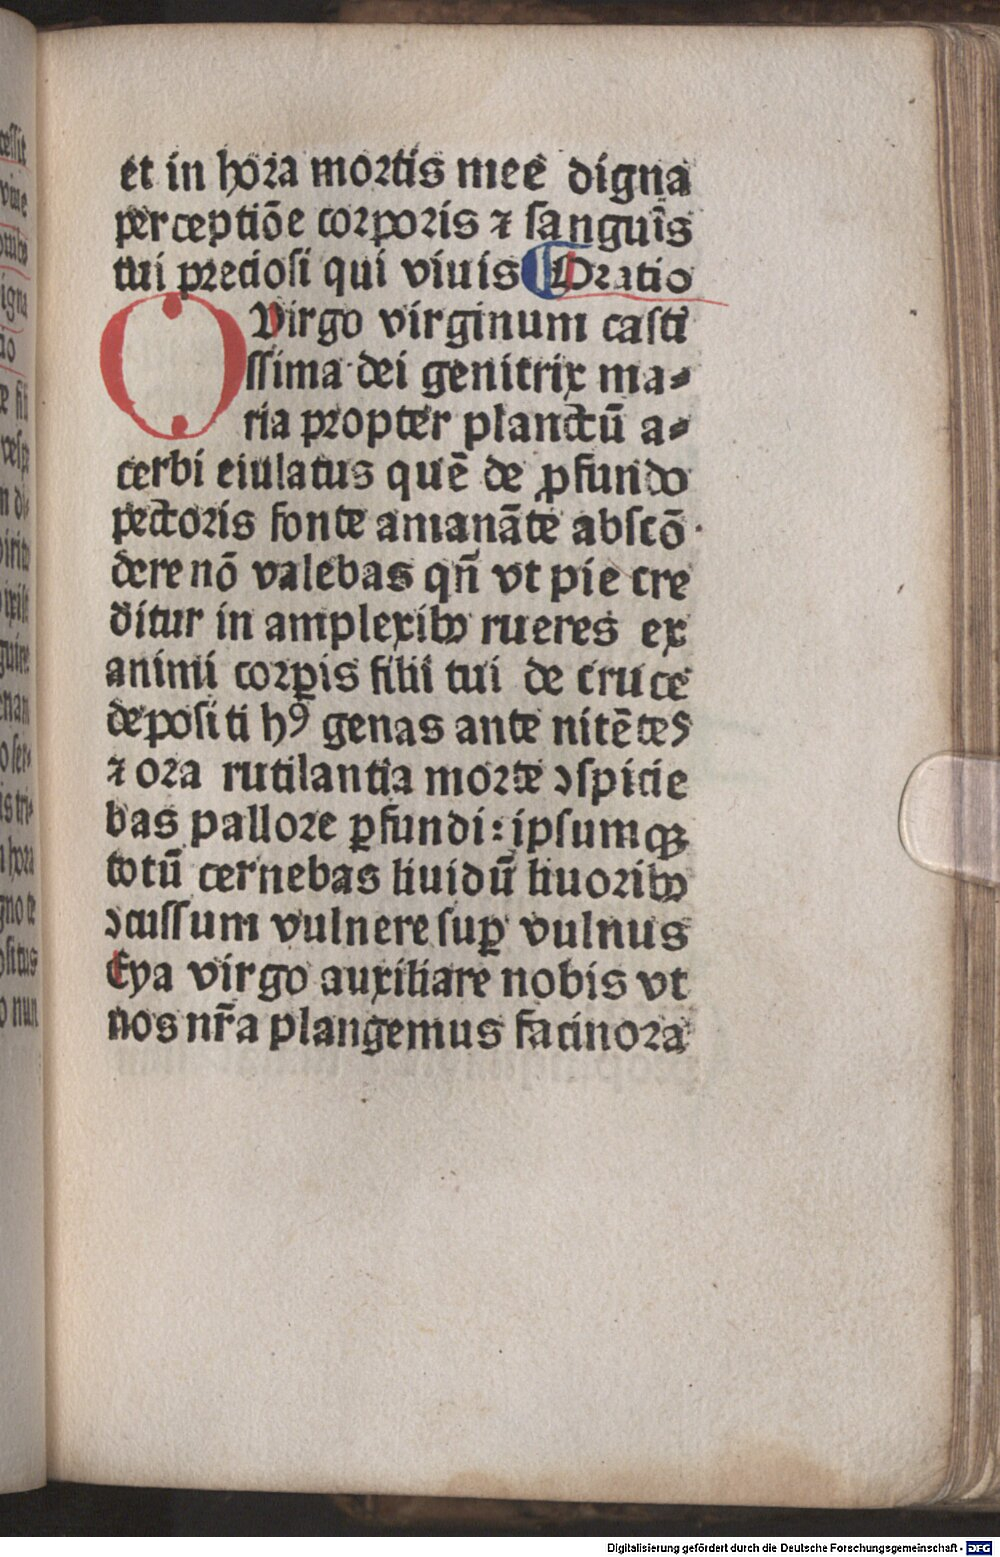 et in hora mortis mee digna
perceptiōe corporis ⁊ sanguīs
tui preciosi qui viuis Oratio
O Virgo virginum casti
ssima dei genitrix ma⸗
ria propter planctū a⸗
cerbi eiulatus quē de ꝓfundo
pectoris fonte amanāte abscō
dere nō valebas qn̄ vt pie cre
ditur in amplexibꝰ rueres ex
animi corꝑis filii tui de cruce
depositi hꝰ genas ante nitētes
⁊ ora rutilantia morte ꝯspicie
bas pallore ꝑfundi: ipsumqꝫ
totū cernebas liuidū liuoribꝰ
ꝯcussum vulnere suꝑ vulnus
Eya virgo auxiliare nobis vt
nos nr̄a plangemus facinora
Digitalisierung gefördert durch die Deutsche Forschungsgemeinschaft - DFG